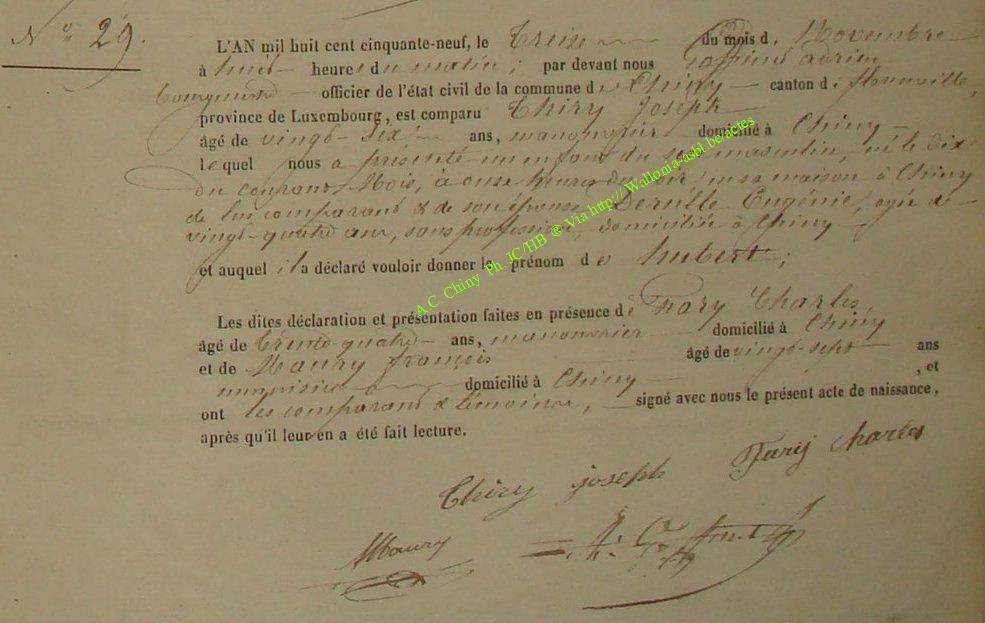 No 29.
L'AN mil huit cent cinquante-neuf, le Treize du mois d. Novembre
à huit heures du matin; par devant nous adrien
Bourgmestre officier de l'état civil de la commune de Chiny canton d. florenville,
province de Luxembourg, est comparu Thiry Joseph
âgé de vingt-six ans, manouvrier domicilié à Chiny
lequel nous a présenté un enfant du sexe masculin, né le dix
du courant Mois, à onze heures du soir, en sa maison à Chiny
de lui comparant & de son épouse Derulle Eugénie, agée de
vingt-quatre ans, sans profession, domiciliée à Chiny
et auquel il a déclaré vouloir donner le prénom de hubert;
Les dites déclaration et présentation faites en présence de Fary Charles,
âgé de trente-quatre ans, manouvrier domicilié à Chiny
et de Maury françois âgé de vingt-sept ans
menuisier domicilié à Chiny, et
ont les comparant & témoins, signé avec nous le présent acte de naissance,
après qu'il leur en a été fait lecture.
Thiry joseph Fary charles
Maury
A.C. Chiny Ph. JC/HB @ Via http://Wallonia-asbl.be/actes